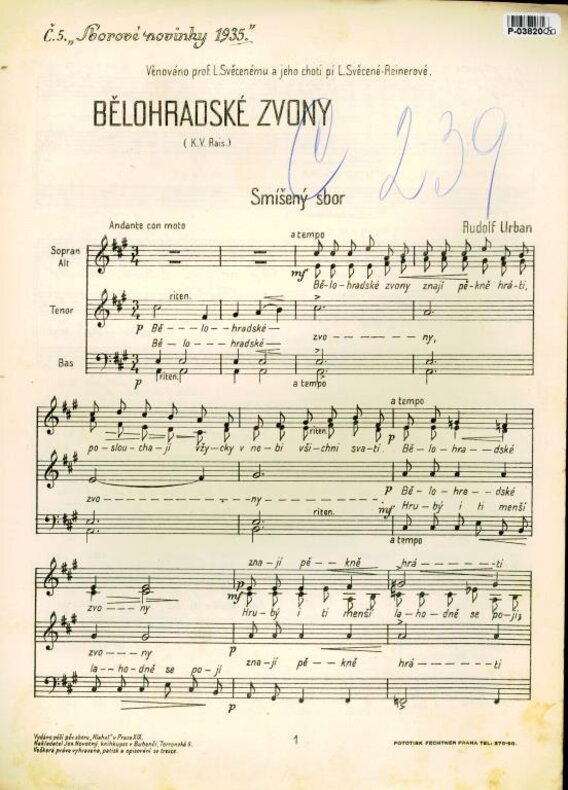 Č.5. „Sborové novinky 1935."
P-03820
Věnováno prof. L.Svěcenému a jeho choti pí L.Svěcené-Reinerové.
BĚLOHRADSKÉ ZVONY
( K.V. Rais.)
C 239
Smíšený sbor
Rudolf Urban
Andante con moto
a tempo
Sopran
Alt
mf
Bě-lo-hradské zvony znají pě-kně hrá-ti,
riten.
Tenor
p Bě---lo-hradské
Bě---lo-hradské
zvo----ny,
Bas
p riten.
a tempo
a tempo
riten.
p
po-slou-cha-jí vžy-cky v ne-bi vši-chni sva-tí. Bě-lo-hra-dské
p Bě-lo-hra-dské
zvo---ny
riten.
mf Hru-bý i ti menší
a tempo
zna-jí pě-kně hrá---ti
p
mf
zvo---ny
Hru-bý i ti menší la-ho-dně se po-jí,
zvo---ny
p
la-ho-dně se po-jí
zna-jí pě-kně hrá---ti
p
Vydáno péčí pěv. sboru „Hlahol" v Praze XIX.
Nakladatel Jos. Novotný, knihkupec v Bubenči, Terronská 5.
Veškerá práva vyhrazena, patisk a opisování se tresce.
1
FOTOTISK FECHTNER PRAHA TEL: 270-90.